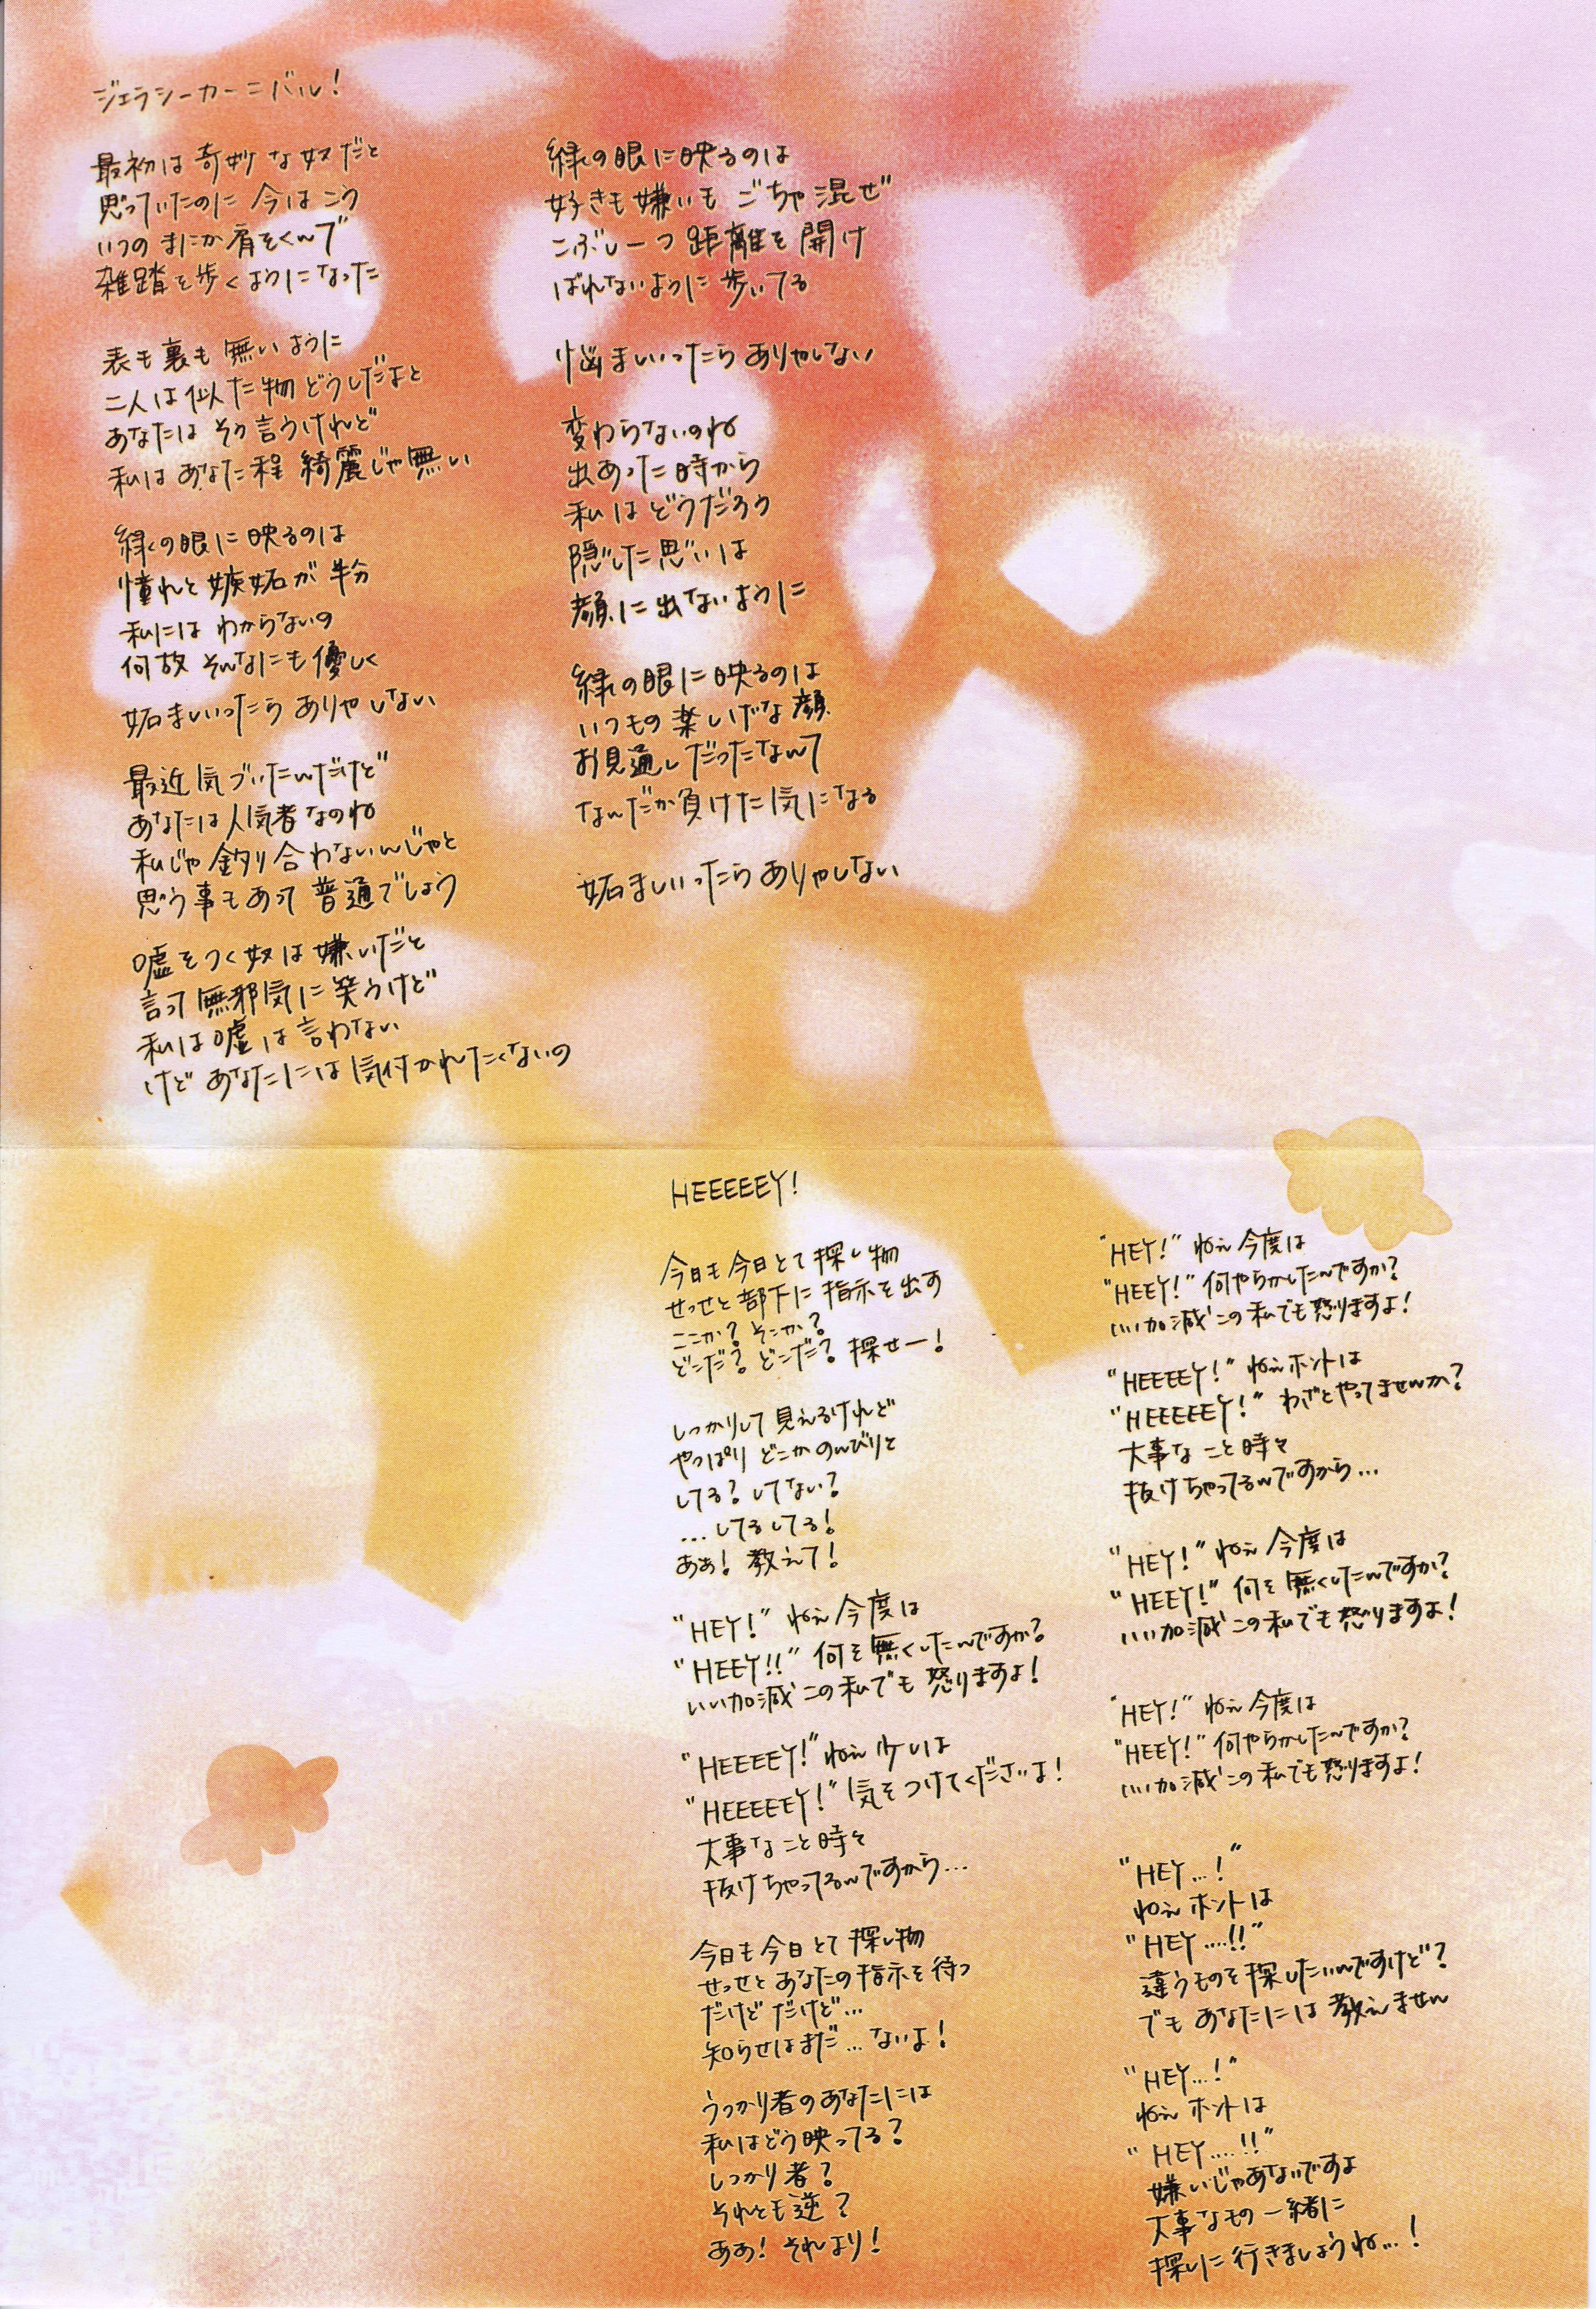 ジェラシーカーニバル!
最初は奇妙な奴だと
思っていたのに 今はこう
いつのまにか肩をくんで
雑踏を歩くようになった
表も裏も無いように
二人は似た物どうしだよと
あなたは そう言うけれど
私はあなた程 綺麗じゃ無い
緑の眼に映るのは
憧れと嫉妬が半分
私には わからないの
何故 そんなにも優しく
妬ましいったら ありゃしない
最近気づいたんだけど
あなたは人気者なのね
私じゃ釣り合わないんじゃと
思う事もあって 普通でしょう
嘘をつく奴は嫌いだと
言って無邪気に笑うけど
私は嘘は言わない
けど あなたには気付かれたくないの
緑の眼に映るのは
好きも嫌いも ごちゃ混ぜ
こぶし一つ 距離を開け
ばれないように 歩いてる
悩ましいったら ありゃしない
変わらないのね
出あった時から
私は どうだろう
隠した思いは
顔に出ないように
緑の眼に映るのは
いつもの楽しげな顔
お見通しだったなんて
なんだか負けた気になる
妬ましいったら ありゃしない
HEEEEEY!
今日も今日とて 探し物
せっせと部下に 指示を出す
ここか? そこか?
どこだ? どこだ? 探せー!
しっかりして見えるけれど
やっぱり どこかのんびりと
してる? してない?
…してるしてる!
ああ! 教えて!
"HEY!" ねえ 今度は
"HEEY!!" 何を無くしたんですか?
いい加減この私でも 怒りますよ!
"HEEEEY!" ねえ 少しは
"HEEEEEY!" 気をつけてくださいよ!
大事なこと時々
抜けちゃってるんですから…
今日も今日とて 探し物
せっせとあなたの指示を待つ
だけど だけど…
知らせはまだ…ないよ!
うっかり者のあなたには
私はどう映ってる?
しっかり者?
それとも逆?
ああ! それより!
"HEY!" ねえ 今度は
"HEEY!" 何やらかしたんですか?
いい加減この私でも怒りますよ!
"HEEEEY!" ねえホントは
"HEEEEEY!" わざとやってませんか?
大事なこと時々
抜けちゃってるんですから…
"HEY!" ねえ 今度は
"HEEY!" 何を無くしたんですか?
いい加減この私でも 怒りますよ!
"HEY!" ねえ 今度は
"HEEY!" 何やらかしたんですか?
いい加減この私でも怒りますよ!
"HEY…!"
ねえ ホントは
"HEY....!!"
違うものを探したいんですけど?
でも あなたには 教えません
"HEY…!"
ねえ ホントは
"HEY....!!"
嫌いじゃあないですよ
大事なもの 一緒に
探しに行きましょうね…!